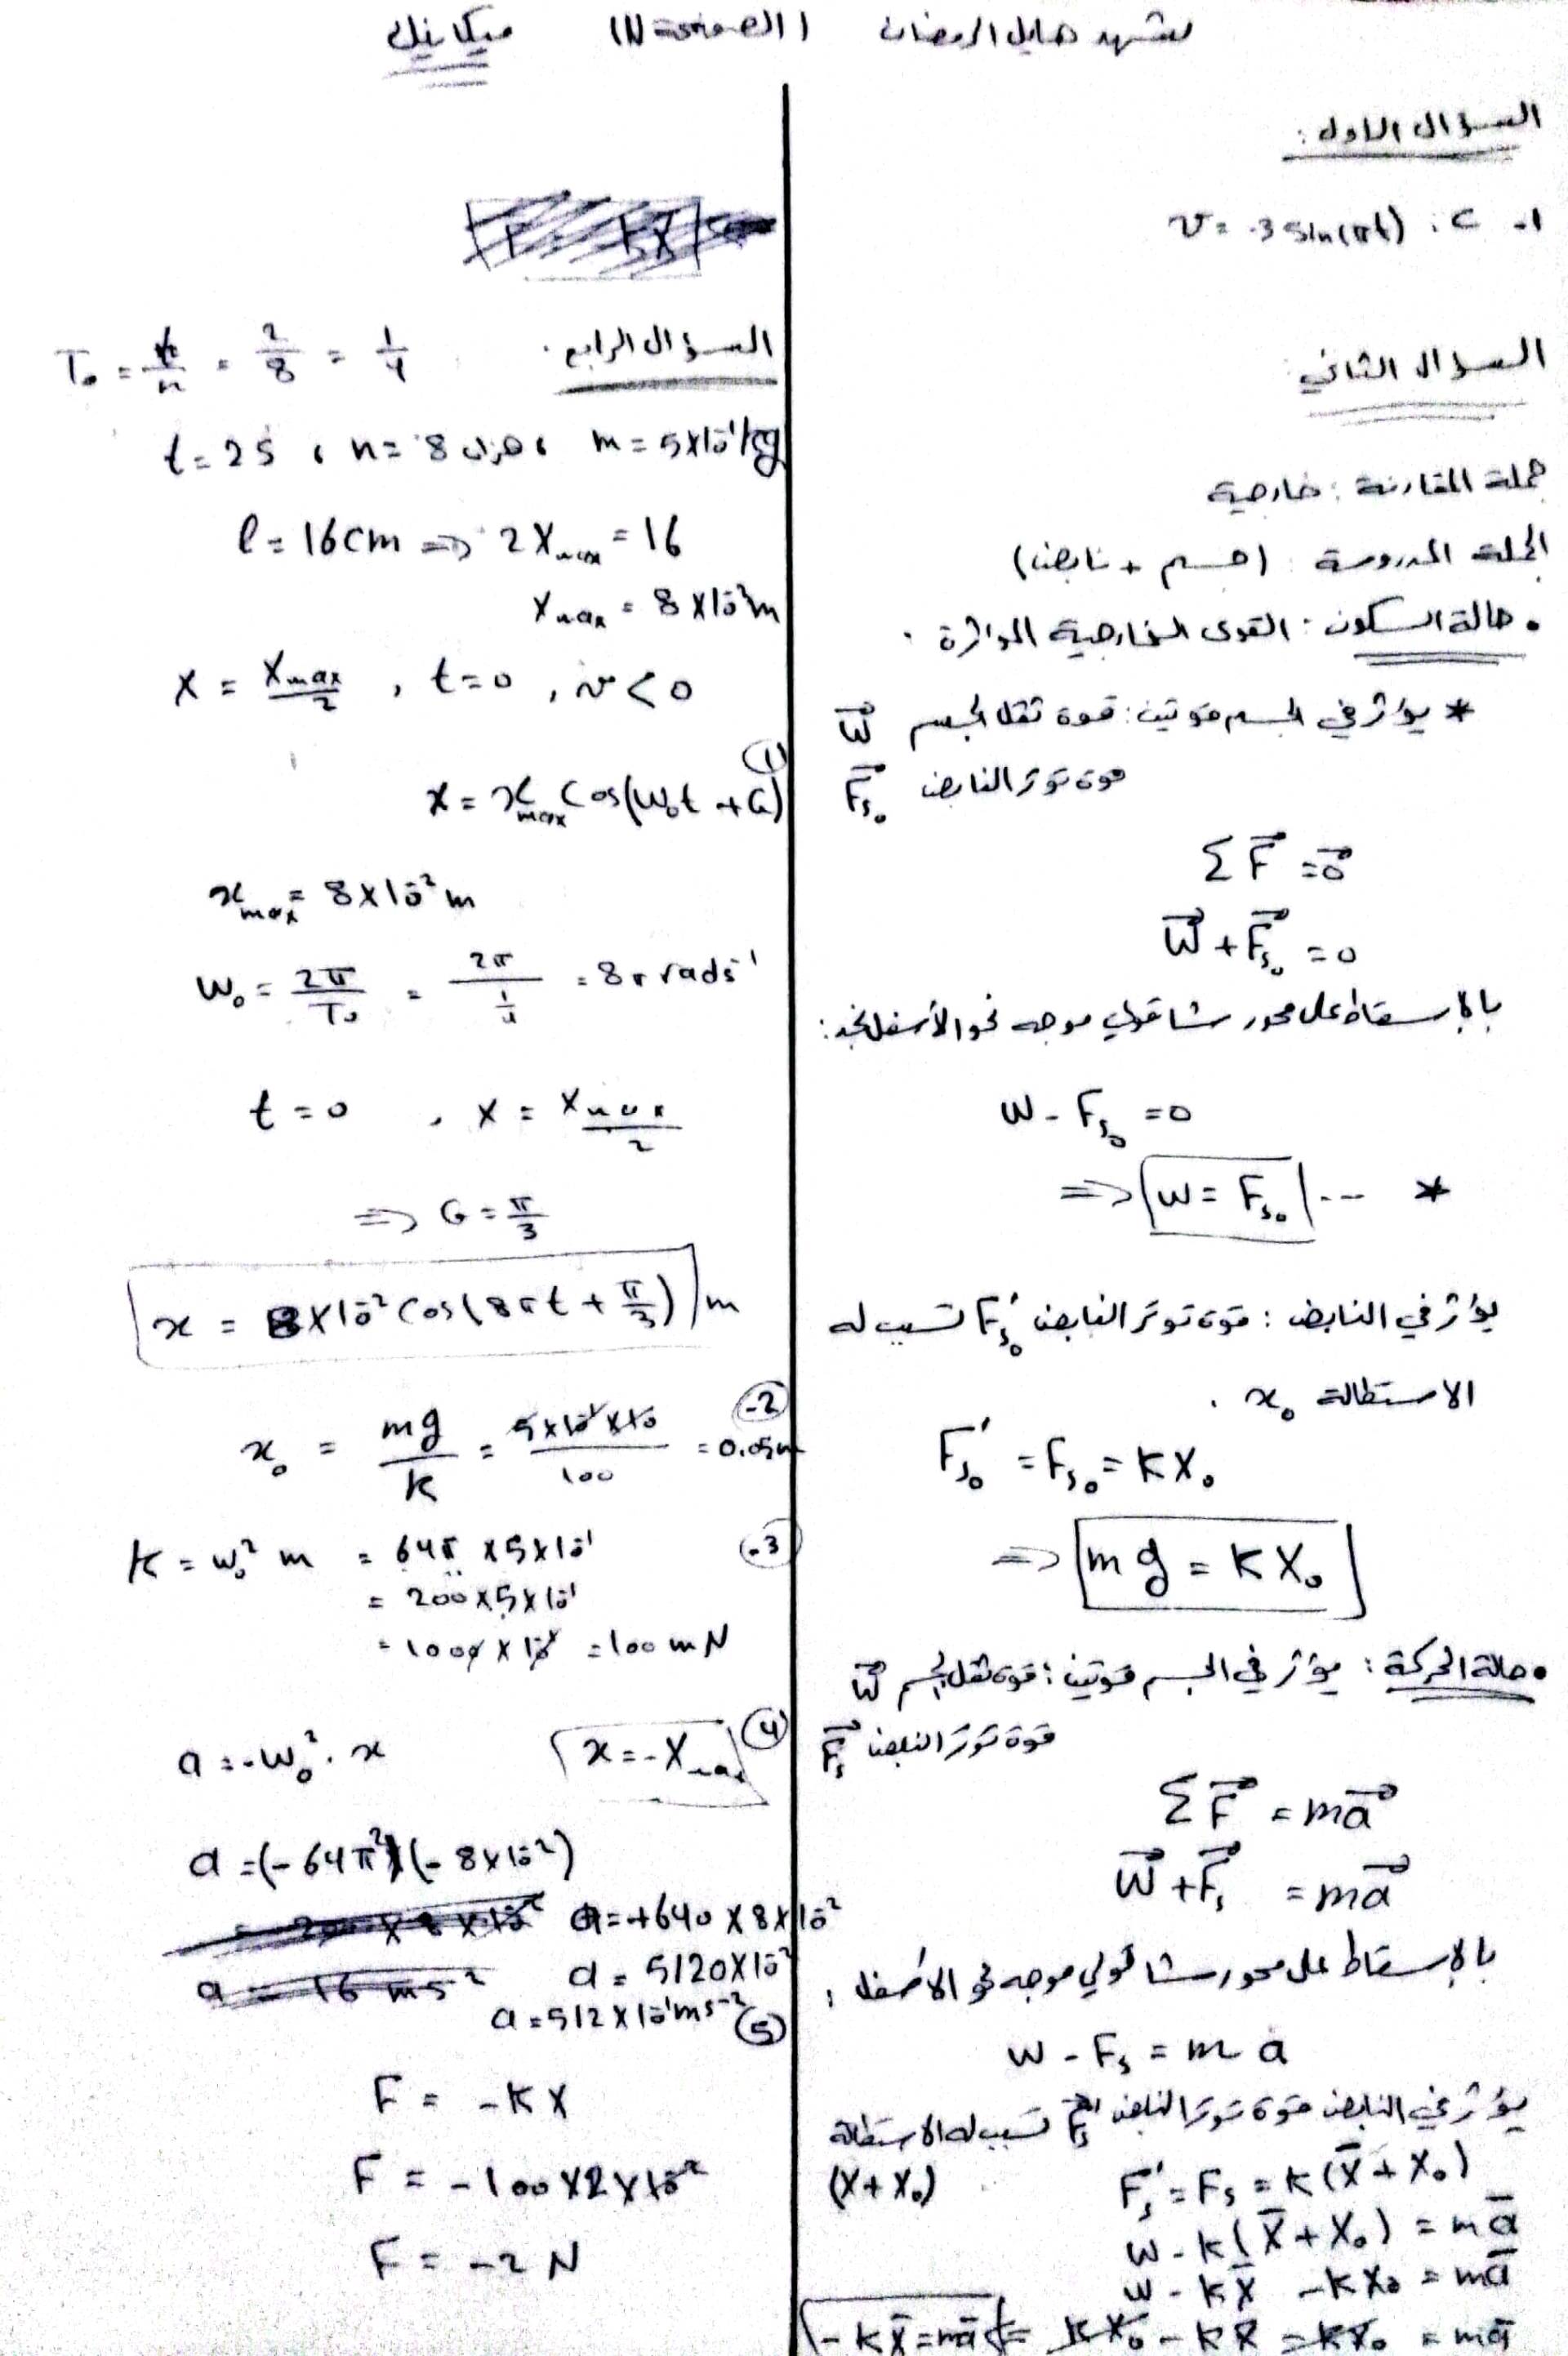 ميكانيك
السؤال الاول:
1- C: v = -3 sin(πt)
السؤال الثاني
جملة المقارنة: خارجية
الجملة المدروسة: (جسم + نابض)
• حالة السكون: القوى الخارجية المؤثرة.
* يؤثر في الجسم قوتين: قوة ثقل الجسم W⃗
قوة توتر النابض F⃗s₀
ΣF⃗ = 0⃗
W⃗ + F⃗s₀ = 0
بالإسقاط على محور شاقولي موجه نحو الأسفل نجد:
W - Fs₀ = 0
⇒ W = Fs₀ ... *
يؤثر في النابض: قوة توتر النابض F's₀ تسبب له
الاستطالة x₀.
F's₀ = Fs₀ = K X₀
⇒ mg = K X₀
• حالة الحركة: يؤثر في الجسم قوتين: قوة ثقل الجسم W⃗
قوة توتر النابض F⃗s
ΣF⃗ = ma⃗
W⃗ + F⃗s = ma⃗
بالإسقاط على محور شاقولي موجه نحو الاسفل:
W - Fs = m a
يؤثر في النابض قوة توتر النابض F⃗'s تسبب له الاستطالة
(X + X₀)
F's = Fs = K(X̄ + X₀)
W - K(X̄ + X₀) = mā
W - KX̄ - KX₀ = mā
-KX̄ = mā ⇐ KX₀ - KX̄ - KX₀ = mā
السؤال الرابع. T₀ = t/n = 2/8 = 1/4
t = 2s ، n = 8 هزات ، m = 5×10⁻¹ kg
l = 16cm ⇒ 2Xmax = 16
Xmax = 8×10⁻²m
X = Xmax/2 , t=0 , v<0
①
X = xmax Cos(ω₀t + φ)
xmax = 8×10⁻² m
ω₀ = 2π/T₀ = 2π/(1/4) = 8π rad s⁻¹
t = 0 , X = Xmax/2
⇒ φ = π/3
x = 8×10⁻² Cos(8πt + π/3) m
2- x₀ = mg/K = 5×10⁻¹×10/100 = 0.05m
3- K = ω₀² m = 64π × 5×10⁻¹
= 200×5×10⁻¹
= 1000×10⁻¹ = 100 mN
④ x = -Xmax
a = -ω₀² . x
a = (-64π²)(-8×10⁻²)
a = +640×8×10⁻²
a = 5120×10⁻²
a = 512×10⁻¹ms⁻²
⑤
F = -KX
F = -100×2×10⁻²
F = -2 N